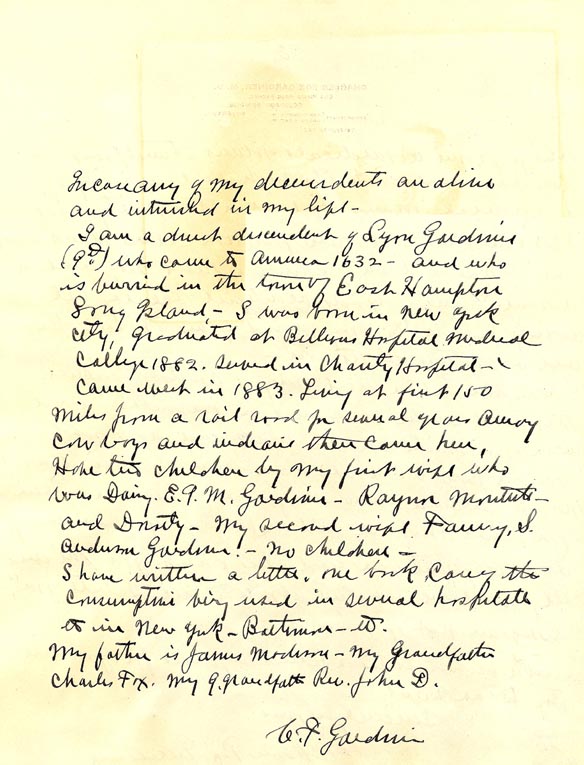 In case any of my decendents are alive
and intersted in my life -
I am a direct descendent of Lyon Gardiner
(9th) who came to America 1632 - and who
is burried in the town of East Hampton
Long Island, - I was born in New York
city, graduated at Bellevue Hospital Medical
College 1882. served in Charity Hospital -
Came West in 1883. Living at first 150
miles from a rail road for several years among
Cow boys and indians then came here,
Have two children by my first wife who
was Daisy. E. P. M. Gardiner -
and Dority - My second wife Fanny. S.
Anderson Gardiner. - No children -
I have written a little, one book, Care of the
Consumptive being used in several hospitals
in New York - Baltimore - etc.
My father is James Madison - My Grandfather
Charles Fox. My g. grandfather Rev. John D.
C. F. Gardiner